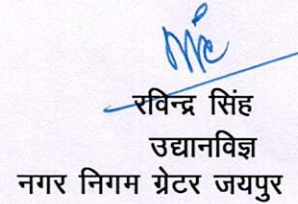 रविन्द्र सिंह
उद्यानविज्ञ
नगर निगम ग्रेटर जयपुर